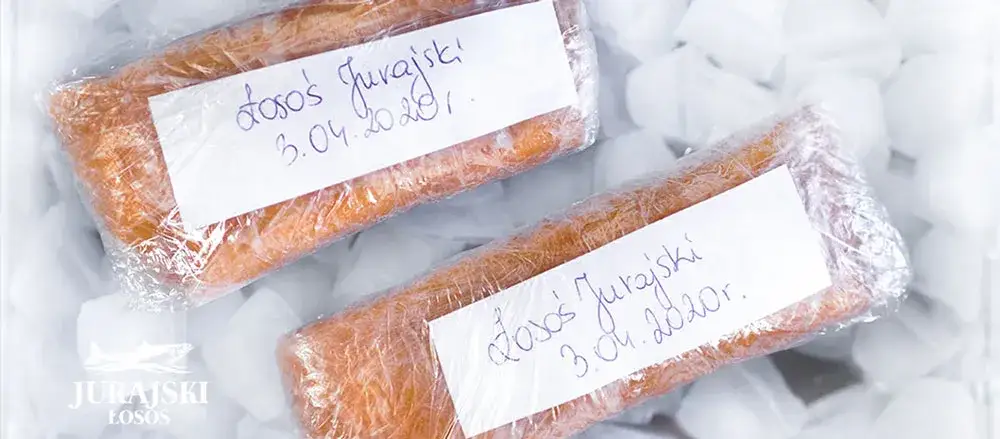 Łosoś Jurajski
3.04.2020r.
Łosoś Jurajski
3.04.2020r.
JURAJSKI
ŁOSOŚ